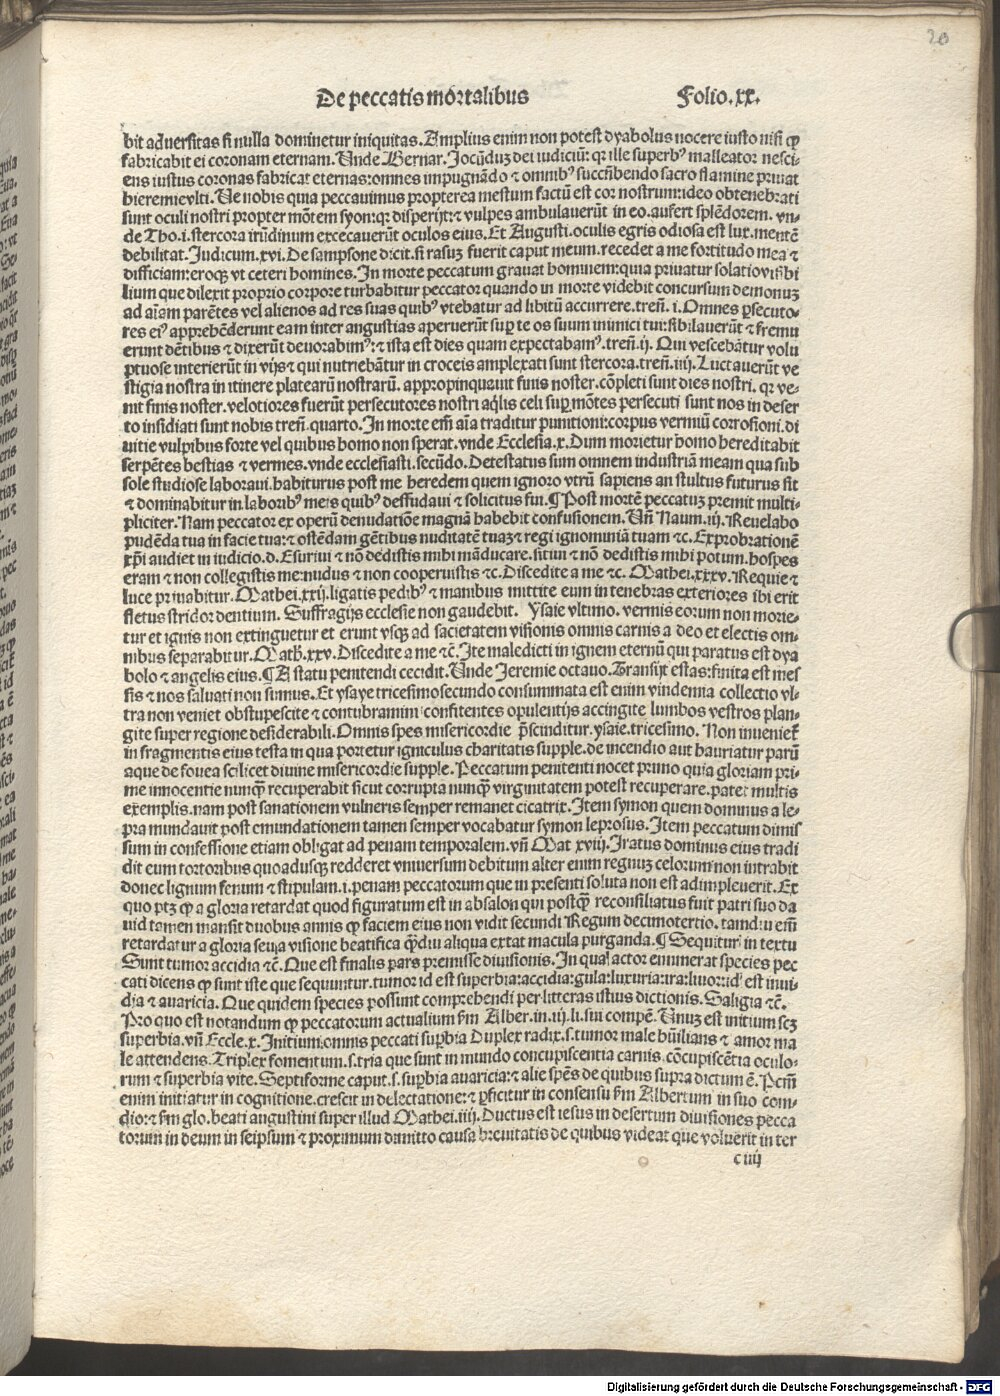 20
De peccatis mortalibus Folio.xx.
bit aduersitas si nulla dominetur iniquitas. Amplius enim non potest dyabolus nocere iusto nisi ꝙ
fabricabit ei coronam eternam. Vnde Bernar. Jocūdꝰ dei iudiciū: qr ille superbꝰ malleator nesci-
ens iustus coronas fabricat eternas: omnes impugnādo ⁊ omnibꝰ succūbendo sacro flamine priuat
hieremie vlti. Ve nobis quia peccauimus propterea mestum factū est cor nostrum: ideo obtenebrati
sunt oculi nostri propter mōtem syon: qr disperijt: ⁊ vulpes ambulauerūt in eo. aufert splēdorem. vn-
de Tho.i. stercora irūdinum excecauerūt oculos eius. Et Augusti. oculis egris odiosa est lux. mentē
debilitat. Judicum.xvi. De sampsone dicit. si rasuȝ fuerit caput meum. recedet a me fortitudo mea ⁊
difficiam: eroqȝ vt ceteri homines. In morte peccatum grauat hominem: quia priuatur solatio visibi
lium que dilexit proprio corpore turbabitur peccator quando in morte videbit concursum demonuȝ
ad aīam parētes vel alienos ad res suas quibꝰ vtebatur ad libitū accurrere. treñ. i. Omnes ꝑsecuto-
res eiꝰ apprehēderunt eam inter angustias aperuerūt suꝑ te os suum inimici tui: sibilauerūt ⁊ fremu
erunt dētibus ⁊ dixerūt deuorabimꝰ: ⁊ ista est dies quam expectabamꝰ. treñ.ij. Qui vescebātur volu
ptuose interierūt in vijs ⁊ qui nutriebātur in croceis amplexati sunt stercora. treñ.iiij. Luctauerūt ve
stigia nostra in itinere platearū nostrarū. appropinquauit finis noster. cōpleti sunt dies nostri. qr ve-
nit finis noster. velotiores fuerūt persecutores nostri aq̄lis celi suꝑ mōtes persecuti sunt nos in deser
to insidiati sunt nobis treñ. quarto. In morte em̄ aīa traditur punitioni: corpus vermiū corrosioni. di
uitie vulpibus forte vel quibus homo non sperat. vnde Ecclesia.x. Dum morietur homo hereditabit
serpētes bestias ⁊ vermes. vnde ecclesiasti. secūdo. Detestatus sum omnem industriā meam qua sub
sole studiose laboraui. habiturus post me heredem quem ignoro vtrū sapiens an stultus futurus sit
⁊ dominabitur in laboribꝰ meis quibꝰ desudaui ⁊ solicitus fui. ¶ Post mortē peccatuȝ premit multi-
pliciter. Nam peccator ex operū denudatiōe magnā habebit confusionem. Vñ Naum.iij. Reuelabo
pudēda tua in facie tua: ⁊ ostēdam gētibus nuditatē tuaȝ ⁊ regi ignominiā tuam ⁊c. Exprobrationē
xp̄i audiet in iudicio. d. Esuriui ⁊ nō dedistis mihi māducare. sitiui ⁊ nō dedistis mihi potum. hospes
eram ⁊ non collegistis me: nudus ⁊ non cooperuistis ⁊c. Discedite a me ⁊c. Mathei.xxxv. Requie ⁊
luce priuabitur. Mathei.xxij. ligatis pedibꝰ ⁊ manibus mittite eum in tenebras exteriores ibi erit
fletus stridor dentium. Suffragijs ecclesie non gaudebit. Ysaie vltimo. vermis eorum non morie-
tur et ignis non extinguetur et erunt vsqȝ ad sacietatem visionis omnis carnis a deo et electis om-
nibus separabitur. Math.xxv. Discedite a me ⁊c. Ite maledicti in ignem eternū qui paratus est dya
bolo ⁊ angelis eius. ¶ A statu penitendi cecidit. Vnde Jeremie octauo. Transijt estas: finita est mes
sis ⁊ nos saluati non sumus. Et ysaye tricesimosecundo consummata est enim vindemia collectio vl-
tra non veniet obstupescite ⁊ contubramini confitentes opulentijs accingite lumbos vestros plan-
gite super regione desiderabili. Omnis spes misericordie p̄scinditur. ysaie. tricesimo. Non inuenieť
in fragmentis eius testa in qua portetur igniculus charitatis supple. de incendio aut hauriatur parū
aque de fouea scilicet diuine misericordie supple. Peccatum penitenti nocet primo quia gloriam pri-
me innocentie nunq̄ȝ recuperabit sicut corrupta nunq̄ȝ virginitatem potest recuperare. patet multis
exemplis. nam post sanationem vulneris semper remanet cicatrix. Item symon quem dominus a le-
pra mundauit post emundationem tamen semper vocabatur symon leprosus. Item peccatum dimis
sum in confessione etiam obligat ad penam temporalem. vñ Mat xviij. Iratus dominus eius tradi
dit eum tortoribus quoadusqȝ redderet vniuersum debitum alter enim regnuȝ celorum non intrabit
donec lignum fenum ⁊ stipulam.i. penam peccatorum que in presenti soluta non est adimpleuerit. Ex
quo ptȝ ꝙ a gloria retardat quod figuratum est in absalon qui postq̄ȝ reconsiliatus fuit patri suo da
uid tamen mansit duobus annis ꝙ faciem eius non vidit secundi Regum decimotertio. tamdiu em̄
retardatur a gloria seu a visione beatifica q̄ȝdiu aliqua extat macula purganda. ¶ Sequitur in textu
Sunt tumor accidia ⁊c. Que est finalis pars premisse diuisionis. In qua actor enumerat species pec
cati dicens ꝙ sunt iste que sequuntur. tumor id est superbia: accidia: gula: luxuria: ira: liuor: id est inui
dia ⁊ auaricia. Que quidem species possunt comprehendi per litteras istius dictionis. Saligia ⁊c.
Pro quo est notandum ꝙ peccatorum actualium ẜm Alber. in.iij. li. sui compē. Vnuȝ est initium scȝ
superbia. vñ Eccle.x. Initium omnis peccati suꝑbia Duplex radix. s. tumor male hūilians ⁊ amor ma
le attendens. Triplex fomentum. s. tria que sunt in mundo concupiscentia carnis. cōcupiscētia oculo-
rum ⁊ superbia vite. Septiforme caput. s. suꝑbia auaricia: ⁊ alie spēs de quibus supra dictum ē. Pctm̄
enim initiatur in cognitione. crescit in delectatione: ⁊ ꝑficitur in consensu ẜm Albertum in suo com-
dio: ⁊ ẜm glo. beati augustini super illud Mathei.iiij. Ductus est iesus in desertum diuisiones pecca
torum in deum in seipsum ⁊ proximum dimitto causa breuitatis de quibus videat que voluerit in ter
c iiij
Digitalisierung gefördert durch die Deutsche Forschungsgemeinschaft - DFG